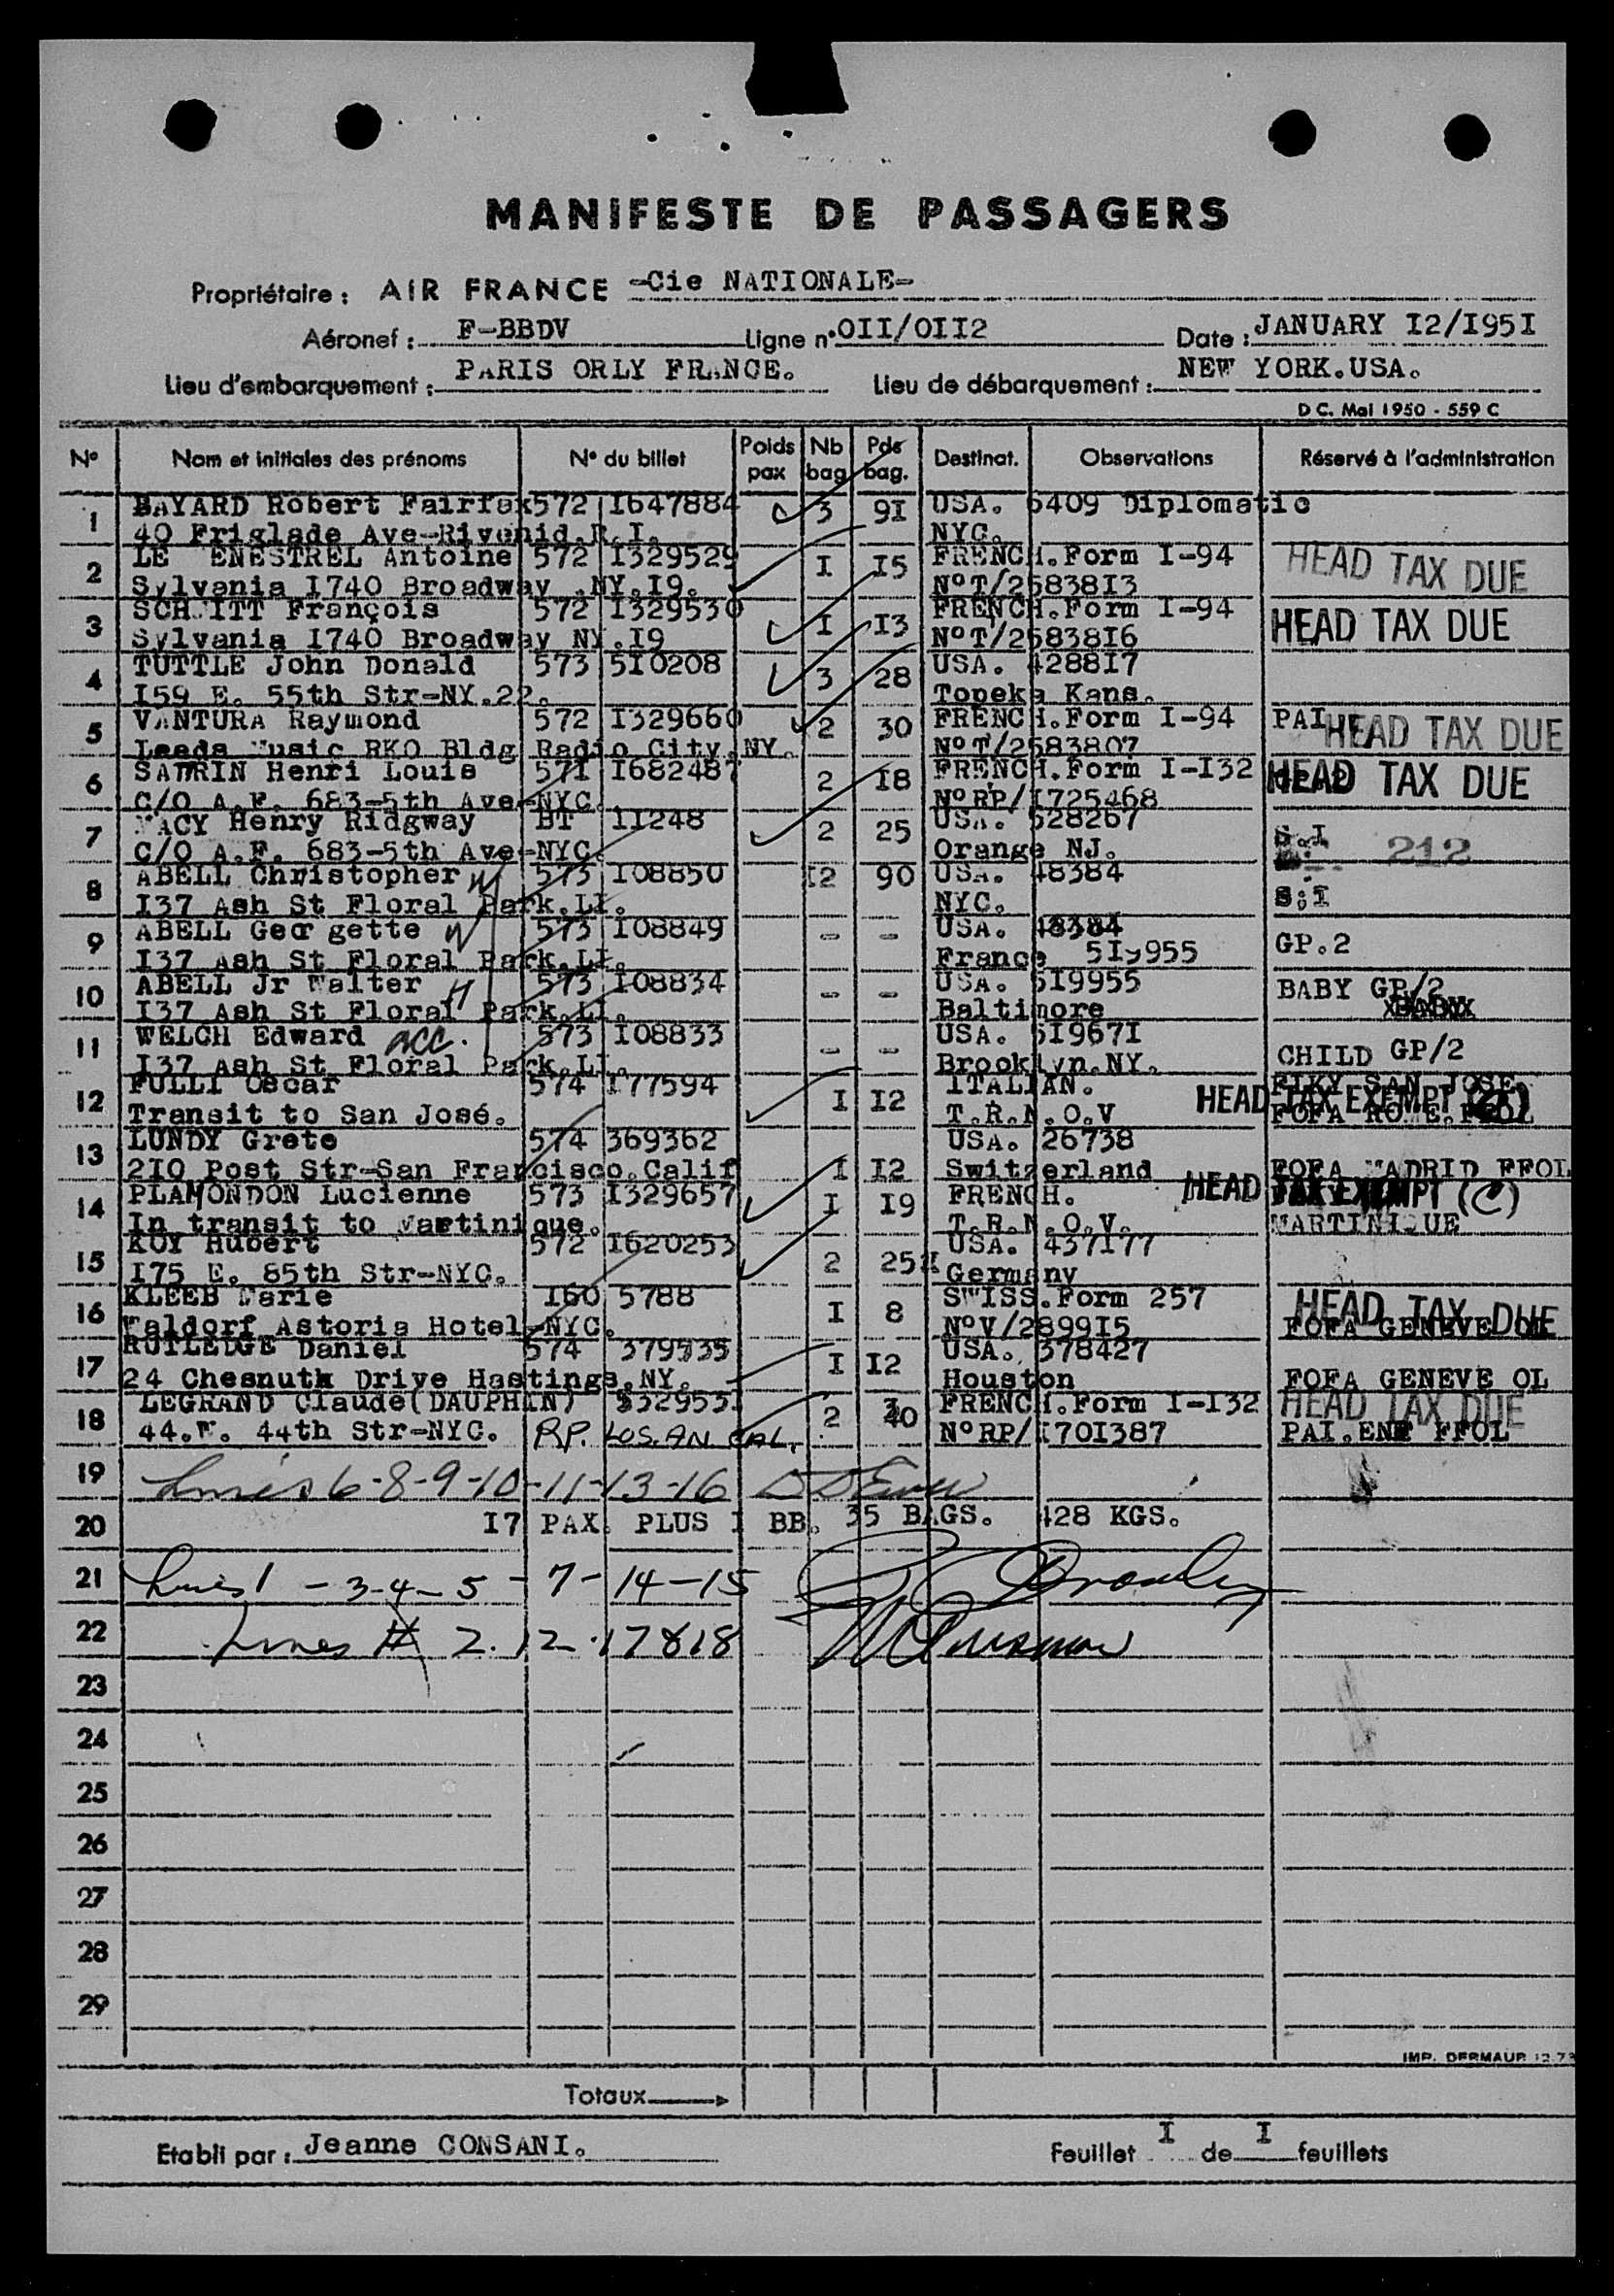 MANIFESTE DE PASSAGERS
Propriétaire : AIR FRANCE -Cie NATIONALE-
Aéronef : F-BBDV Ligne n° OII/OII2 Date : JANUARY I2/I95I
Lieu d'embarquement : PARIS ORLY FRANCE. Lieu de débarquement : NEW YORK.USA.
D C. Mai 1950 - 559 C
N° Nom et initiales des prénoms N° du billet Poids pax Nb bag Pds bag. Destinat. Observations Réservé à l'administration
1 BAYARD Robert Fairfax 572 I647884 3 9I USA. 6409 Diplomatic
40 Friglade Ave-Rivenid.R.I. NYC.
2 LE ENESTREL Antoine 572 I329529 I I5 FRENCH.Form I-94 HEAD TAX DUE
Sylvania I740 Broadway .NY.I9. N°T/2583813
3 SCHMITT François 572 I329530 I I3 FRENCH.Form I-94 HEAD TAX DUE
Sylvania I740 Broadway NY.I9 N°T/2583816
4 TUTTLE John Donald 573 5I0208 3 28 USA. 4288I7
I59 E. 55th Str-NY.22. Topeka Kans.
5 VANTURA Raymond 572 I329660 2 30 FRENCH.Form I-94 PAI HEAD TAX DUE
Leeds Music RKO Bldg Radio City.NY. N°T/2583807
6 SATRIN Henri Louis 571 I682487 2 I8 FRENCH.Form I-I32 HEAD TAX DUE
C/O A.F. 683-5th Ave-NYC. N°RP/I725468
7 MACY Henry Ridgway BT 1I248 2 25 USA. 528267 S.I
C/O A.F. 683-5th Ave-NYC. Orange NJ. 212
8 ABELL Christopher 573 I08850 I2 90 USA. 48384 S.I
I37 Ash St Floral Park.LI. NYC.
9 ABELL Geor gette 573 I08849 - - USA. 48384 GP.2
I37 Ash St Floral Park.LI. France 5I9955
10 ABELL Jr Walter 573 I08834 - - USA. 5I9955 BABY GP/2
I37 Ash St Floral Park.LI. Baltimore
11 WELCH Edward acc. 573 I08833 - - USA. 5I967I CHILD GP/2
I37 Ash St Floral Park.LI. Brooklyn.NY.
12 FULLI Oscar 574 I77594 I I2 ITALIAN. SAN JOSE HEAD TAX EXEMPT
Transit to San José. T.R.N.O.V
13 LUNDY Grete 574 369362 I I2 USA. 26738
2I0 Post Str-San Francisco.Calif Switzerland FOFA MADRID FFOL
14 PLAMONDON Lucienne 573 I329657 I I9 FRENCH. HEAD TAX EXEMPT (C)
In transit to Martinique. T.R.N.O.V. MARTINIQUE
15 ROY Hubert 572 I620253 2 25 USA. 437I77
I75 E. 85th Str-NYC. Germany
16 KLEEB Marie I60 5788 I 8 SWISS.Form 257 HEAD TAX DUE
Waldorf Astoria Hotel-NYC. N°V/2899I5 FOFA GENEVE OL
17 RUTLEDGE Daniel 574 379535 I I2 USA. 378427
24 Chesnuth Drive Hastings.NY. Houston FOFA GENEVE OL
18 LEGRAND Claude(DAUPHIN) 2 FRENCH.Form I-I32 HEAD TAX DUE
44.W. 44th Str-NYC. RP. LOS. AN CAL. N°RP/I70I387 PAI.ENF FFOL
19 Lines 6-8-9-10-11-13-16
20 I7 PAX. PLUS I BB. 35 BAGS. 428 KGS.
21 Lines 1 - 3-4-5-7-14-15
22 Lines # 2. 12. 17 & 18
23
24
25
26
27
28
29
IMP. DERMAUR
Totaux
Etabli par : Jeanne CONSANI. Feuillet I de I feuillets